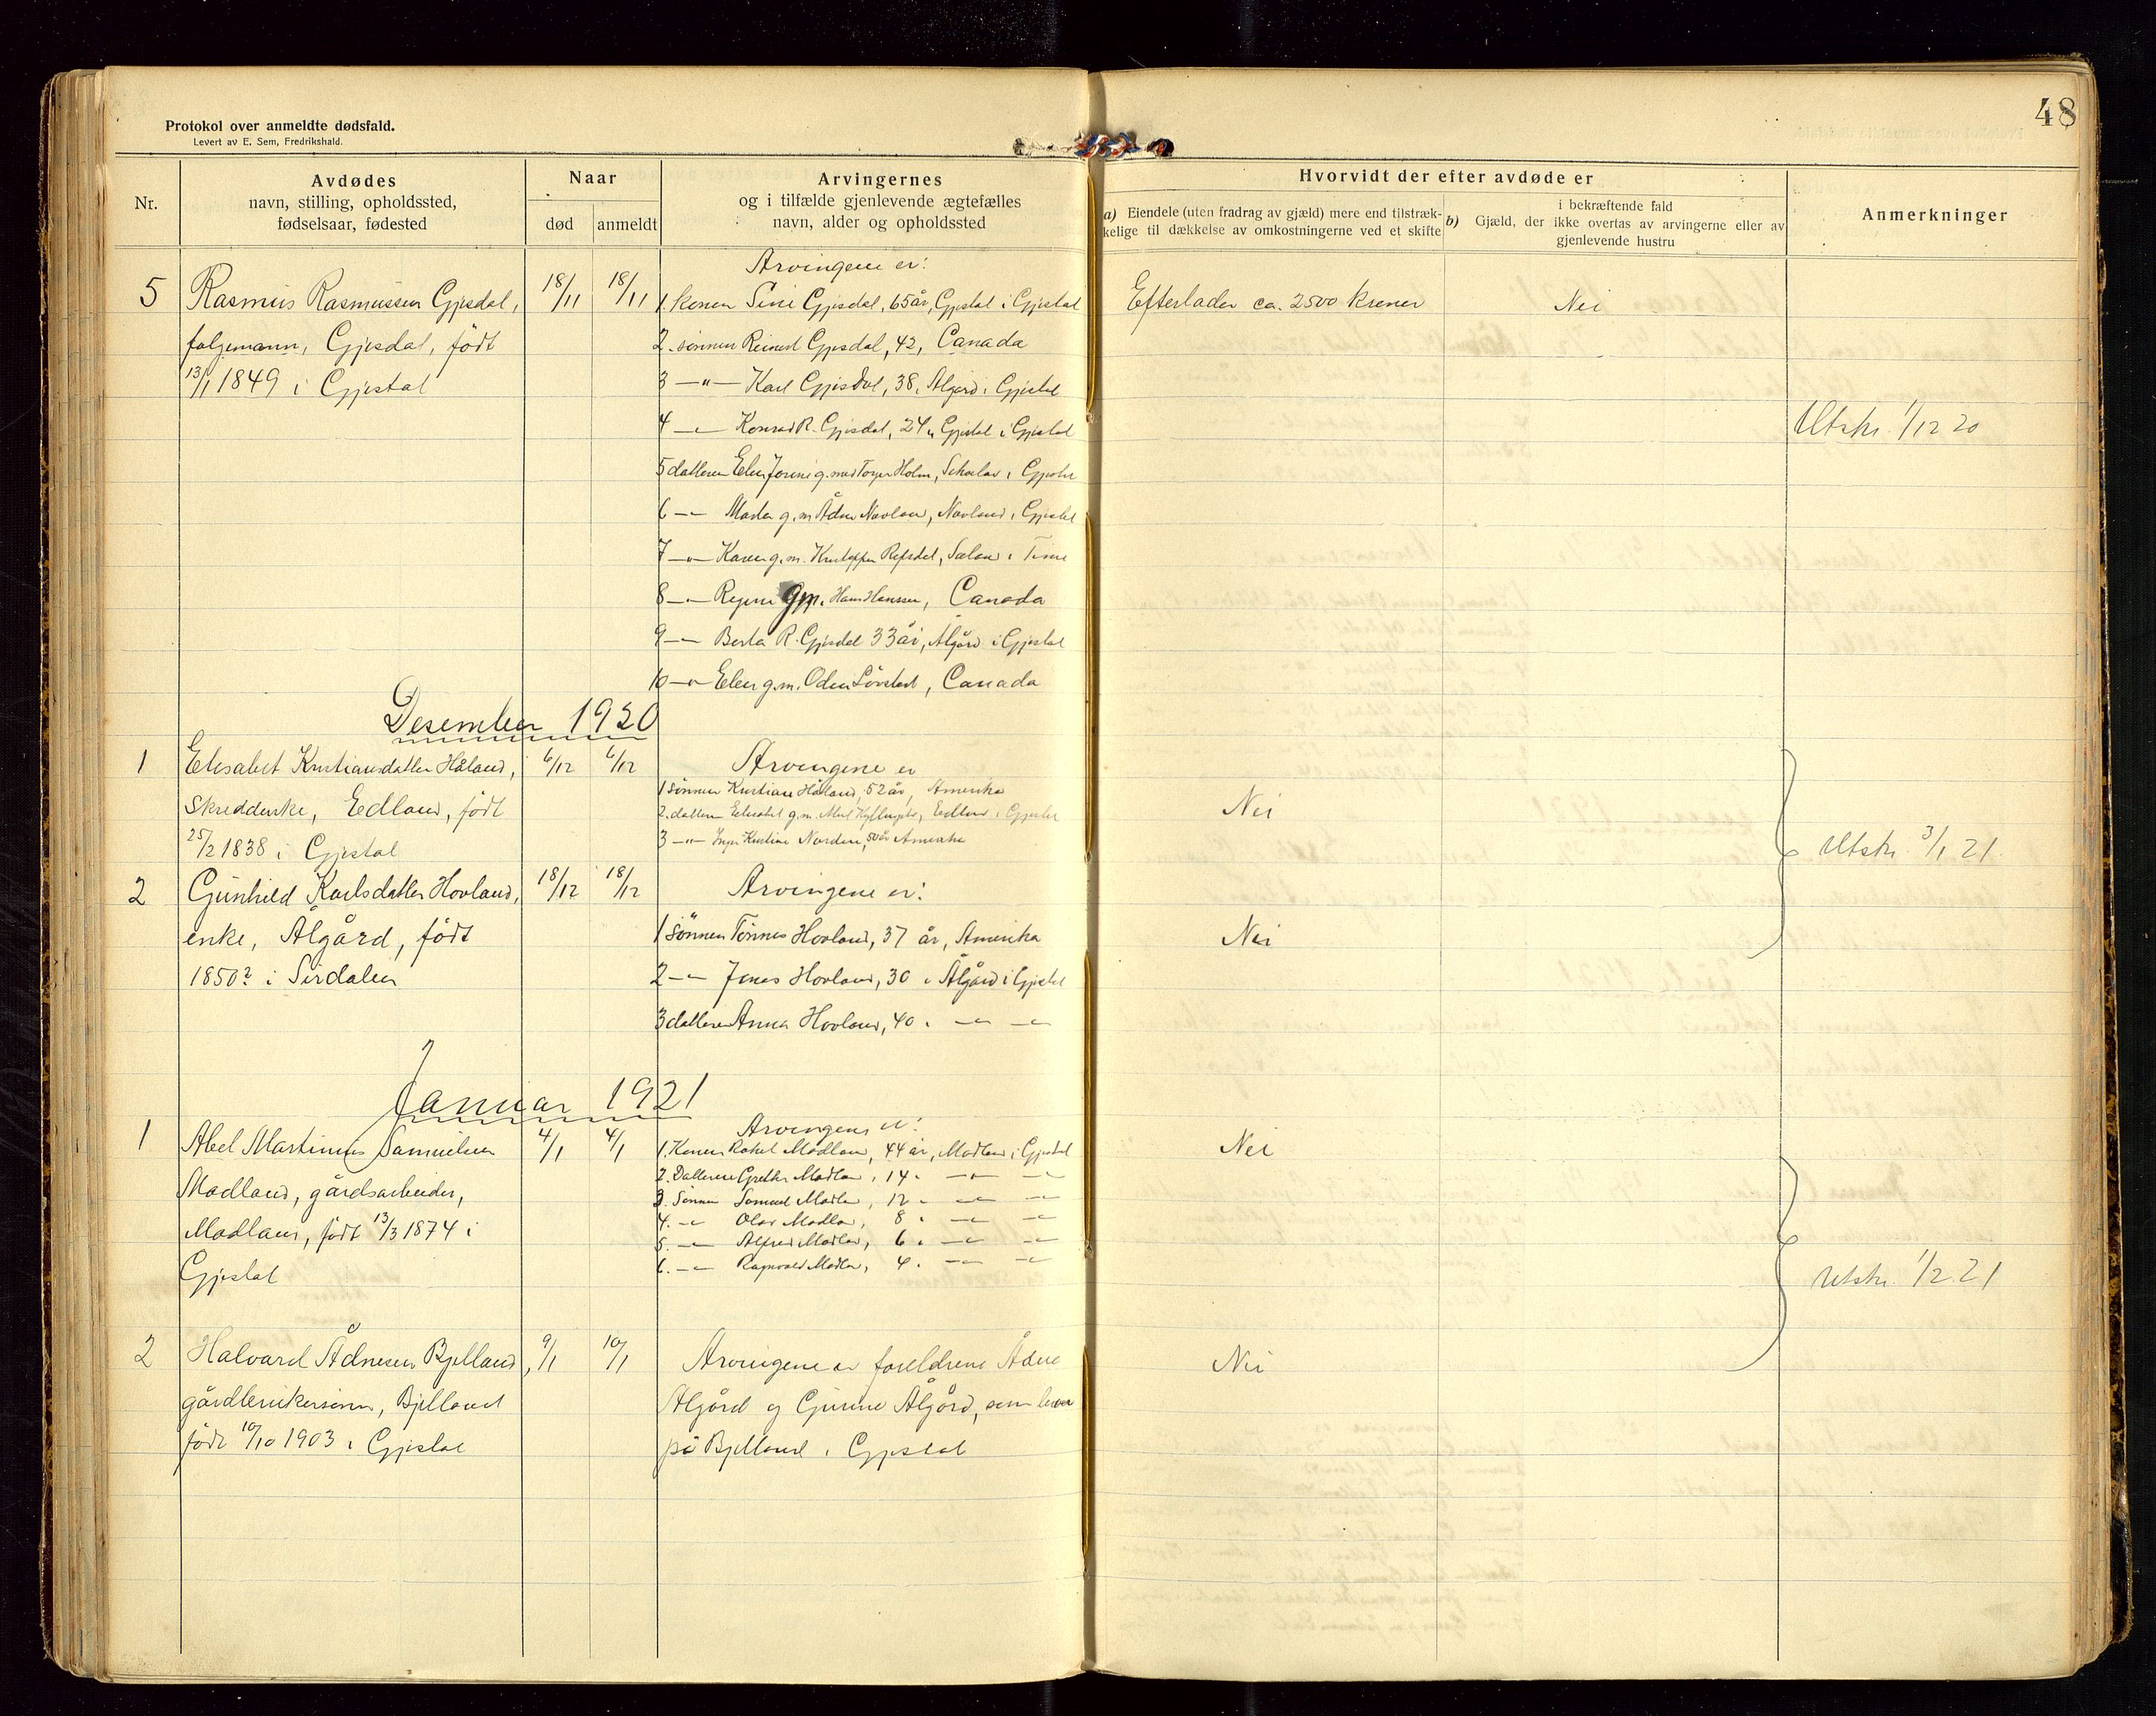 48
Protokol over anmeldte dødsfald.
Levert av E. Sem, Fredrikshald.
Nr.
Avdødes
navn, stilling, opholdssted,
fødselsaar, fødested
Naar
død
anmeldt
Arvingernes
og i tilfælde gjenlevende ægtefælles
navn, alder og opholdssted
Hvorvidt der efter avdøde er
a) Eiendele (uten fradrag av gjæld) mere end tilstræk-
kelige til dækkelse av omkostningerne ved et skifte
i bekræftende fald
b) Gjæld, der ikke overtas av arvingerne eller av
gjenlevende hustru
Anmerkninger
5
Rasmus Rasmussen Gjesdal,
folgemann, Gjesdal, født
13/1 1849 i Gjestal
18/11
18/11
Arvingene er:
1. konen Sini Gjesdal, 65 år, Gjestal i Gjestal
2. sønnen Reinert Gjesdal, 42, Canada
3 —"— Karl Gjesdal, 38, Ålgård i Gjestal
4 —"— Konrad R. Gjesdal, 24 " Gjestal i Gjestal
5 datteren Elen Jorine g. med Torger Holm, i Gjestal
6 —"— g. m. Ådne Navland, Navland i Gjestal
7 —"— Karen g. m. Kristoffer Refsdal, i Time
8 —"— Regine g. m. Hans Hanssen, Canada
9 —"— Berta R. Gjesdal 33 år, Ålgård i Gjestal
10 —"— Elen g. m. Oden, Canada
Efterlader ca. 2500 kroner
Nei
Utskr. 1/12 20
Desember 1920
1
Elisabet Kristiansdatter Håland,
skredderske, Edland, født
25/2 1838 i Gjestal
6/12
6/12
Arvingene er
1 sønnen Kristian Håland, 52 år, Amerika
2. datteren Elisabet g. m. Edland i Gjestal
3 —"— Inger Kristine 50 år Amerika
Nei
Utskr. 3/1 21
2
Gunhild Karlsdatter Hovland,
enke, Ålgård, født
1850? i Sirdalen
18/12
18/12
Arvingene er:
1 sønnen Tønnes Hovland, 37 år, Amerika
2 —"— Jonas Hovland, 30 " Ålgård i Gjestal
3 datteren Anna Hovland, 40 " —"— —"—
Nei
Januar 1921
1
Abel Martinius Samuelsen
Madland, gårdsarbeider,
Madland, født 13/3 1874 i
Gjestal
4/1
4/1
Arvingene er:
1. Konen Rakel Madland, 44 år, Madland i Gjestal
2. Datteren Madland, 14 " —"— —"—
3. Sønnen Samuel Madland, 12 " —"— —"—
4. —"— Olav Madland, 8 " —"— —"—
5. —"— Alfred Madland, 6 " —"— —"—
6. —"— Ragnvald Madland, 4 " —"— —"—
Nei
Utskr. 1/2 21
2
Halvard Ådnesen Bjelland,
gårdbrukersønn, Bjelland
født 10/10 1903 i Gjestal
9/1
10/1
Arvingene er foreldrene Ådne
Ålgård og Gurine Ålgård, som bor
på Bjelland i Gjestal
Nei